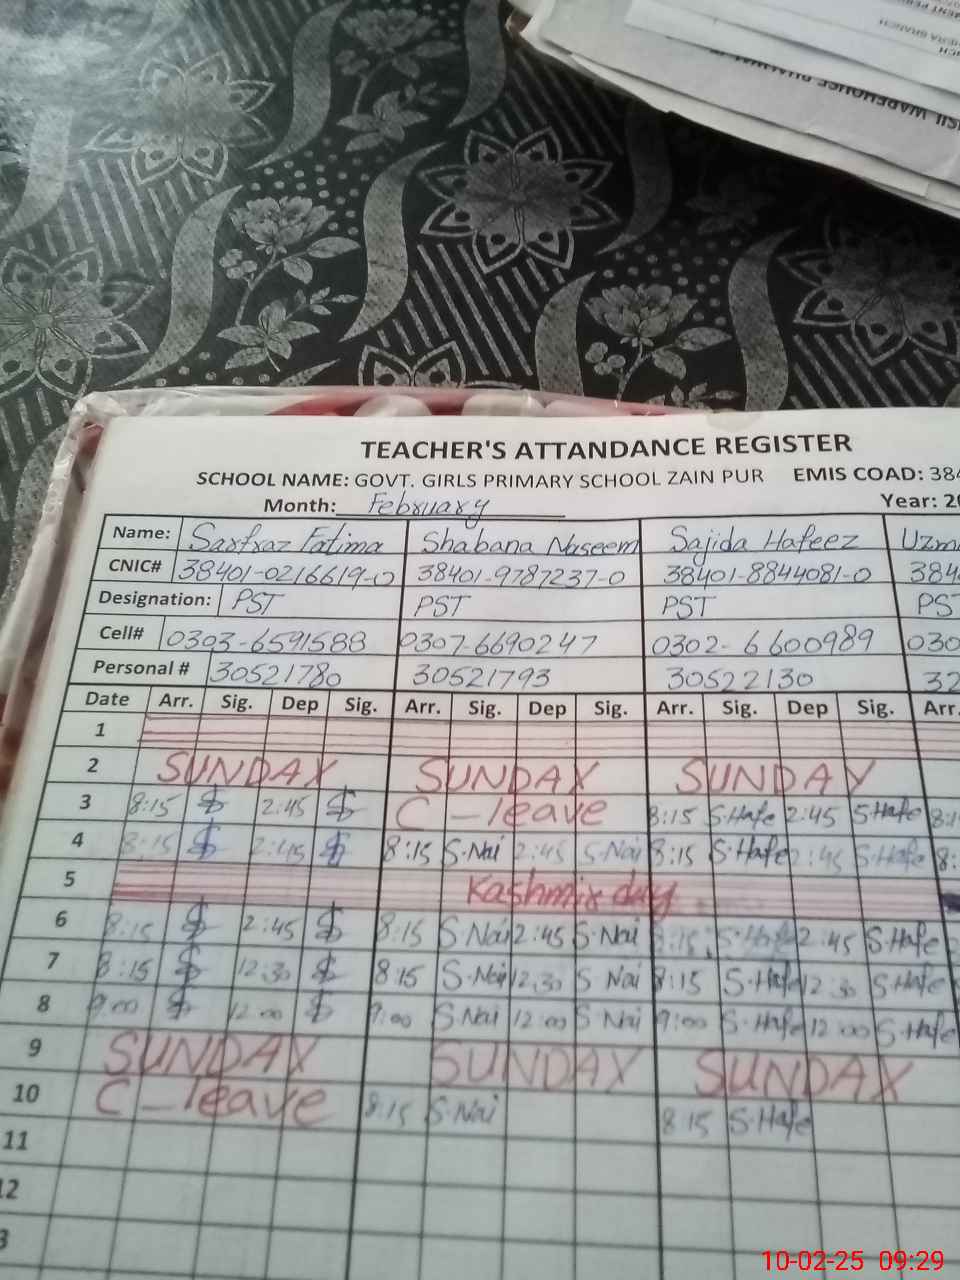 WAREHOUSE
TEACHER'S ATTANDANCE REGISTER
SCHOOL NAME: GOVT. GIRLS PRIMARY SCHOOL ZAIN PUR EMIS COAD: 384
Month: February Year: 20
Name: Sarfraz Fatima Shabana Naseem Sajida Hafeez Uzm
CNIC# 38401-0216619-0 38401-9787237-0 38401-8844081-0 384
Designation: PST PST PST PS
Cell# 0303-6591588 0307-6690247 0302-6600989 030
Personal # 30521780 30521793 30522130 32
Date Arr. Sig. Dep Sig. Arr. Sig. Dep Sig. Arr. Sig. Dep Sig. Arr.
1
2 SUNDAY SUNDAY SUNDAY
3 8:15 2:45 C-leave 8:15 S.Hafe 2:45 S.Hafe 8:1
4 8:15 2:45 8:15 S.Nai 2:45 S.Nai 8:15 S.Hafe 2:45 S.Hafe 8:
5 Kashmir day
6 8:15 2:45 8:15 S.Nai 2:45 S.Nai 8:15 S.Hafe 2:45 S.Hafe
7 8:15 12:30 8:15 S.Nai 12:30 S Nai 8:15 S.Hafe 12:30 S.Hafe
8 9:00 12:00 9:00 S.Nai 12:00 S Nai 9:00 S.Hafe 12:00 S.Hafe
9 SUNDAY SUNDAY SUNDAY
10 C-leave 8:15 S.Nai 8:15 S.Hafe
11
12
3
10-02-25 09:29